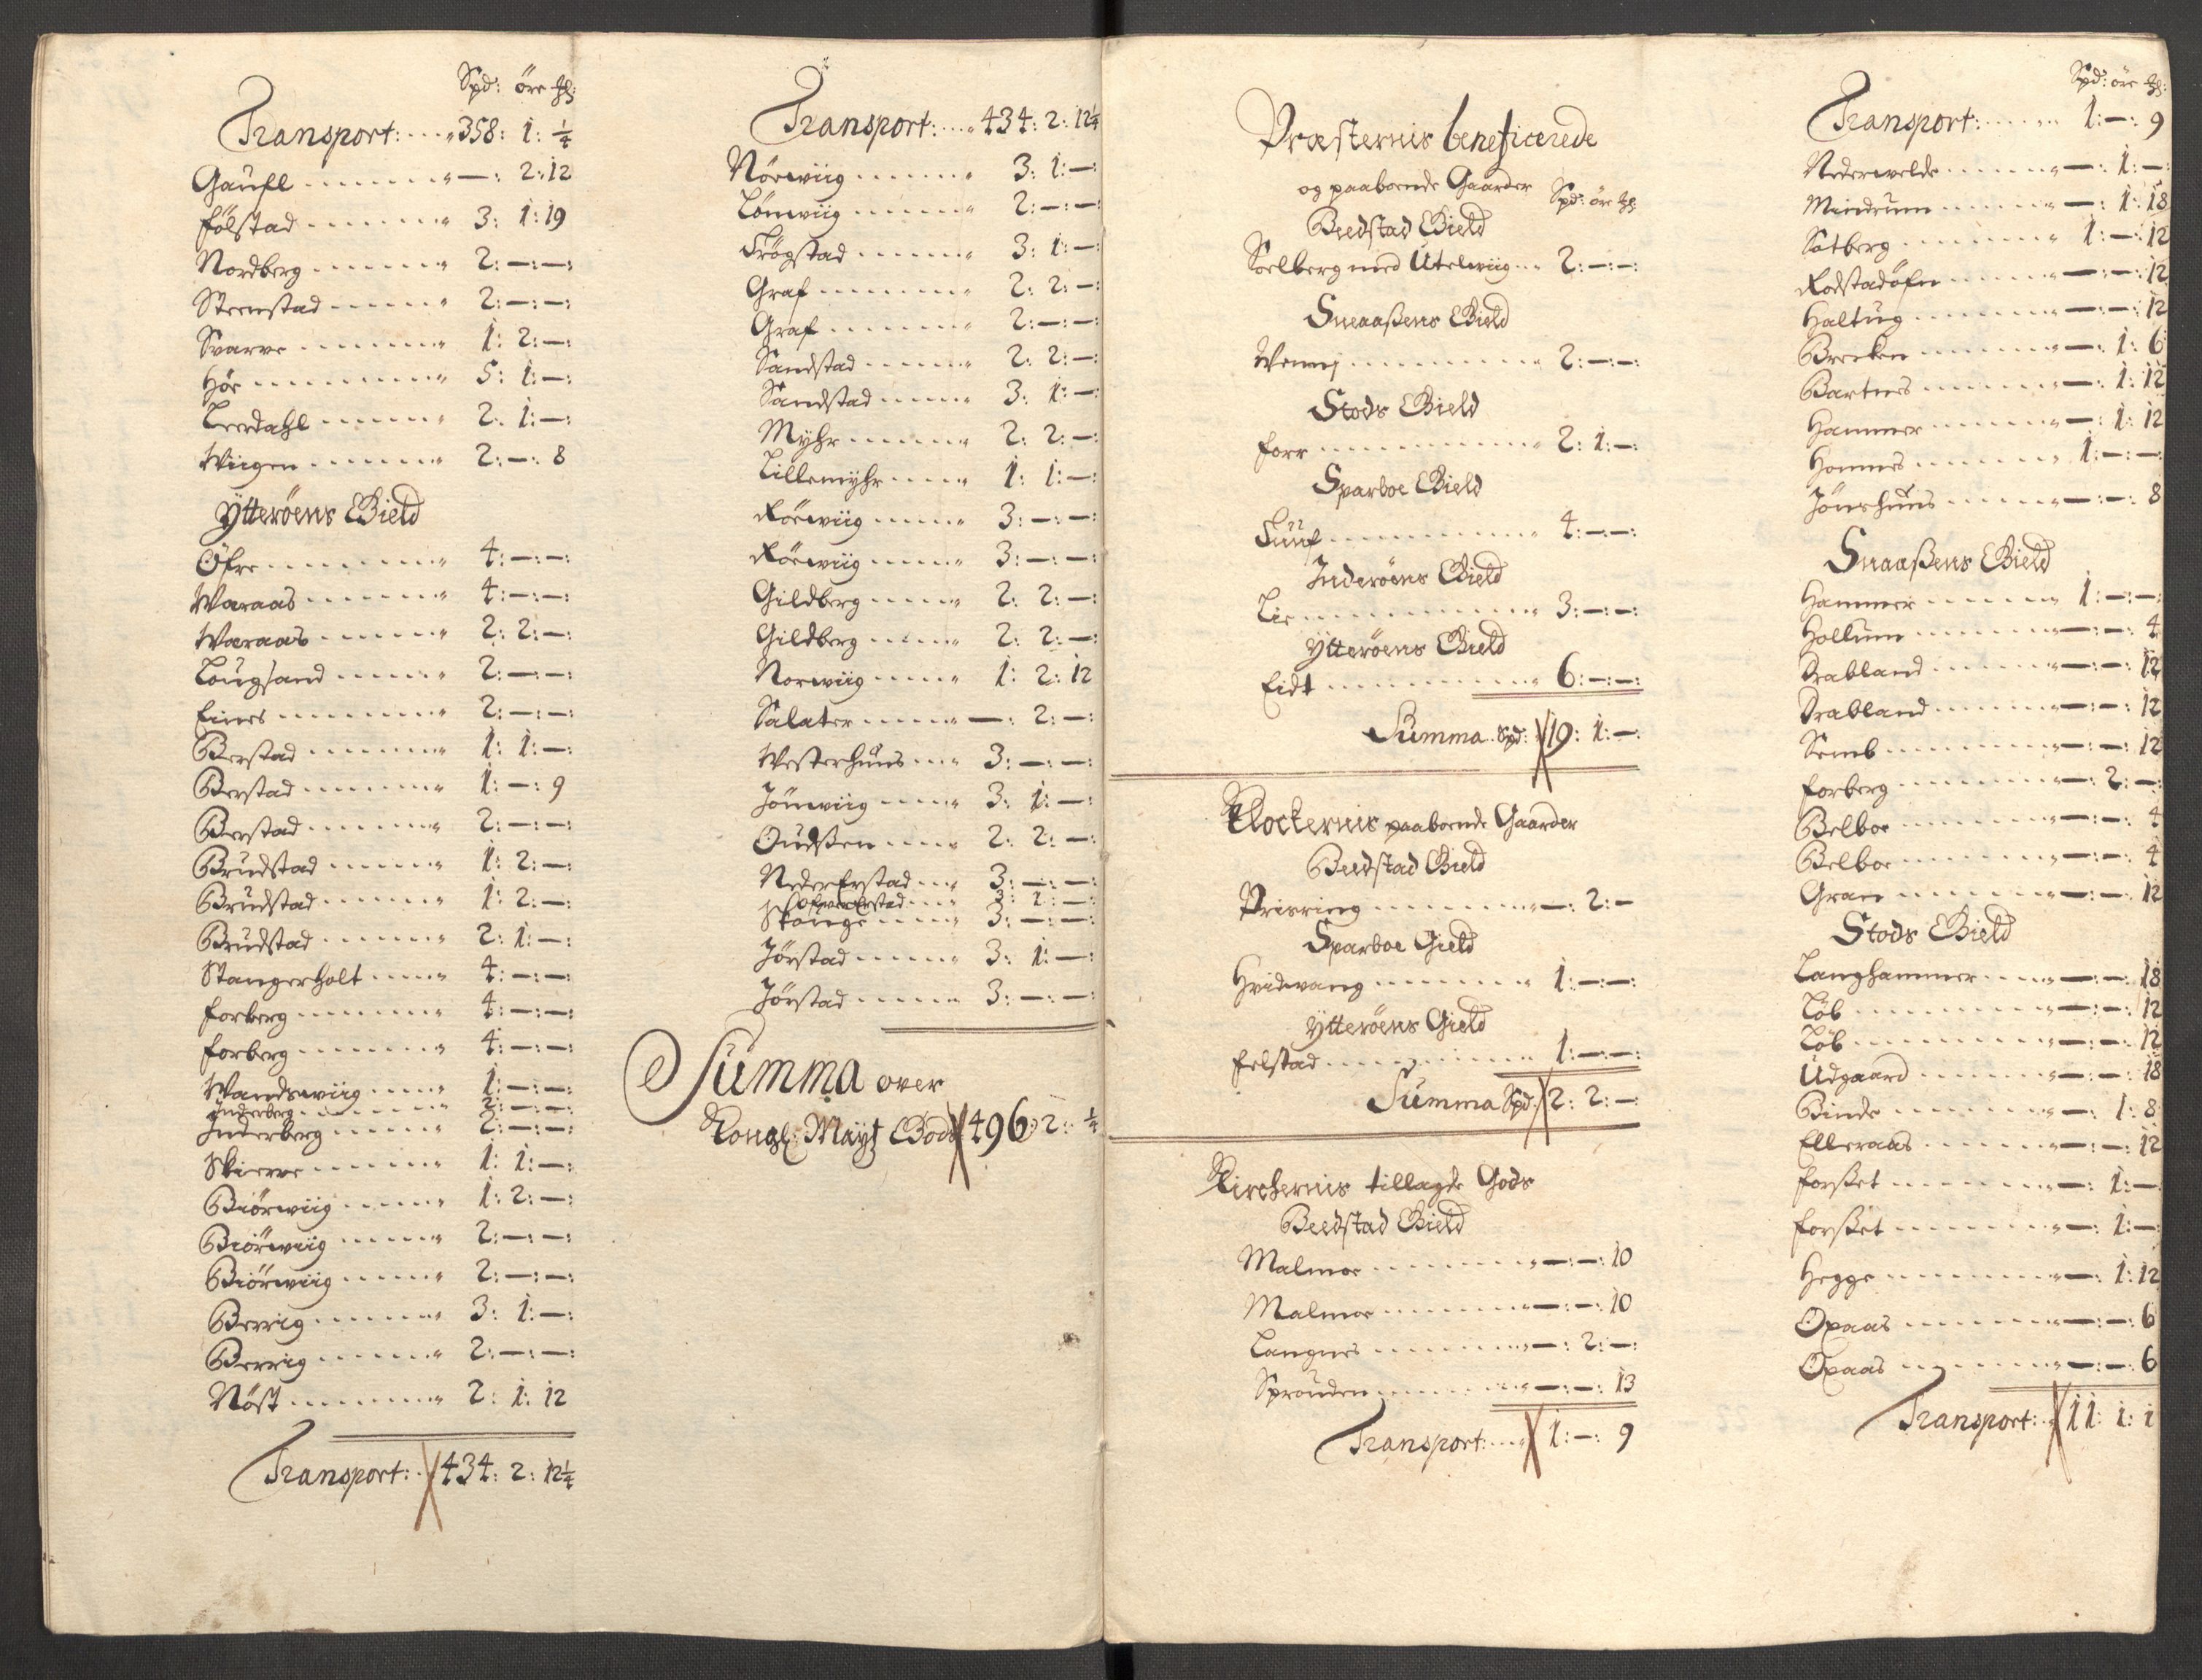 Spd: öre
Transport: 358: 1: 1/4
Gausl —: 2: 12
Fölstad 3: 1: 19
Nordberg 2: —: —:
Steenstad 2: —: —:
Svarve 1: 2: —:
Hör 5: 1: —:
Leerdahl 2: 1: —:
Wiigen 2: —: 8
Ytteröens Gield
Öfre 4: —: —:
Waraas 4: —: —:
Waraas 2: 2: —:
Lougsand 2: —: —:
Eines 2: —: —:
Berstad 1: 1: —:
Berstad 1: —: 9
Berstad 2: —: —:
Brudstad 1: 2: —:
Brudstad 1: 2: —:
Brudstad 2: 1: —:
Stangerholt 4: —: —:
Forberg 4: —: —:
Forberg 4: —: —:
Wandswiig 1: —: —:
Inderberg 2: —: —:
Inderberg 2: —: —:
Skierve 1: 1: —:
Biörwiig 1: 2: —:
Biörwiig 2: —: —:
Biörwiig 2: —: —:
Berrig 3: 1: —:
Berrig 2: —: —:
Nöst 2: 1: 12
Transport: 434: 2: 12 1/4
Transport: 434: 2: 12 1/4
Nörwiig 3: 1: —:
Lönwiig 2: —: —:
Frögstad 3: 1: —:
Graf 2: 2: —:
Graf 2: —: —:
Sandstad 2: 2: —:
Sandstad 3: 1: —:
Myhr 2: 2: —:
Lillemyhr 1: 1: —:
Rörwiig 3: —: —:
Rörwiig 3: —: —:
Gildberg 2: 2: —:
Gildberg 2: 2: —:
Norwiig 1: 2: 12
Salater —: 2: —:
Westerhuus 3: —: —:
Jönwiig 3: 1: —:
Oudsten 2: 2: —:
Neder Erstad 3: —: —:
Öfver Erstad 3: 1: —:
Skange 3: —: —:
Jörstad 3: 1: —:
Jörstad 3: —: —:
Summa over
Kongl: Mayt Gods 496: 2: 1/4
Præsternis beneficerede
og paaboende Gaarder Spd: öre
Beedstad Gield
Soelberg med Utelwiig 2: —: —:
Sneaaßens Gield
Wennj 2: —: —:
Stods Gield
Forr 2: 1: —:
Sparboe Gield
Tuuf 4: —: —:
Inderöens Gield
Lie 3: —: —:
Ytteröens Gield
Eidt 6: —: —:
Summa Spd: 19: 1: —:
Klockernis paaboende Gaarder
Beedstad Gield
Priering —: 2: —
Sparboe Gield
Hvidevang 1: —: —:
Ytteröens Gield
Felstad 1: —: —:
Summa Spd: 2: 2: —:
Kirchernis tillagde Gods
Beedstad Gield
Malmoe —: —: 10
Malmoe —: —: 10
Langnes —: 2: —:
Sprouden —: —: 13
Transport: 1: —: 9
Spd: öre
Transport: 1: —: 9
Nederwelde —: 1: —:
Mindrum —: 1: 18
Solberg 1: —: 12
Rodstadöfn —: —: 12
Haltug —: —: 12
Brecken —: 1: 6
Bartnes —: 1: 12
Hammer —: 1: 12
Homnes 1: —: —
Jönshuus —: —: 8
Snaaßens Gield
Hammer 1: —: —:
Hollum —: —: 4
Drabland —: —: 12
Drabland —: —: 12
Semb —: —: 12
Forberg —: 2: —:
Belboe —: —: 4
Belboe —: —: 4
Gran —: —: 12
Stods Gield
Langhammer —: —: 18
Löb —: —: 12
Löb —: —: 12
Udgaard —: —: 18
Binde —: 1: 8
Elleraas —: —: 12
Forßet —: 1: —
Forßet —: 1: —
Hegge —: 1: 12
Opaas —: —: 6
Opaas —: —: 6
Transport: 11: 1: 1